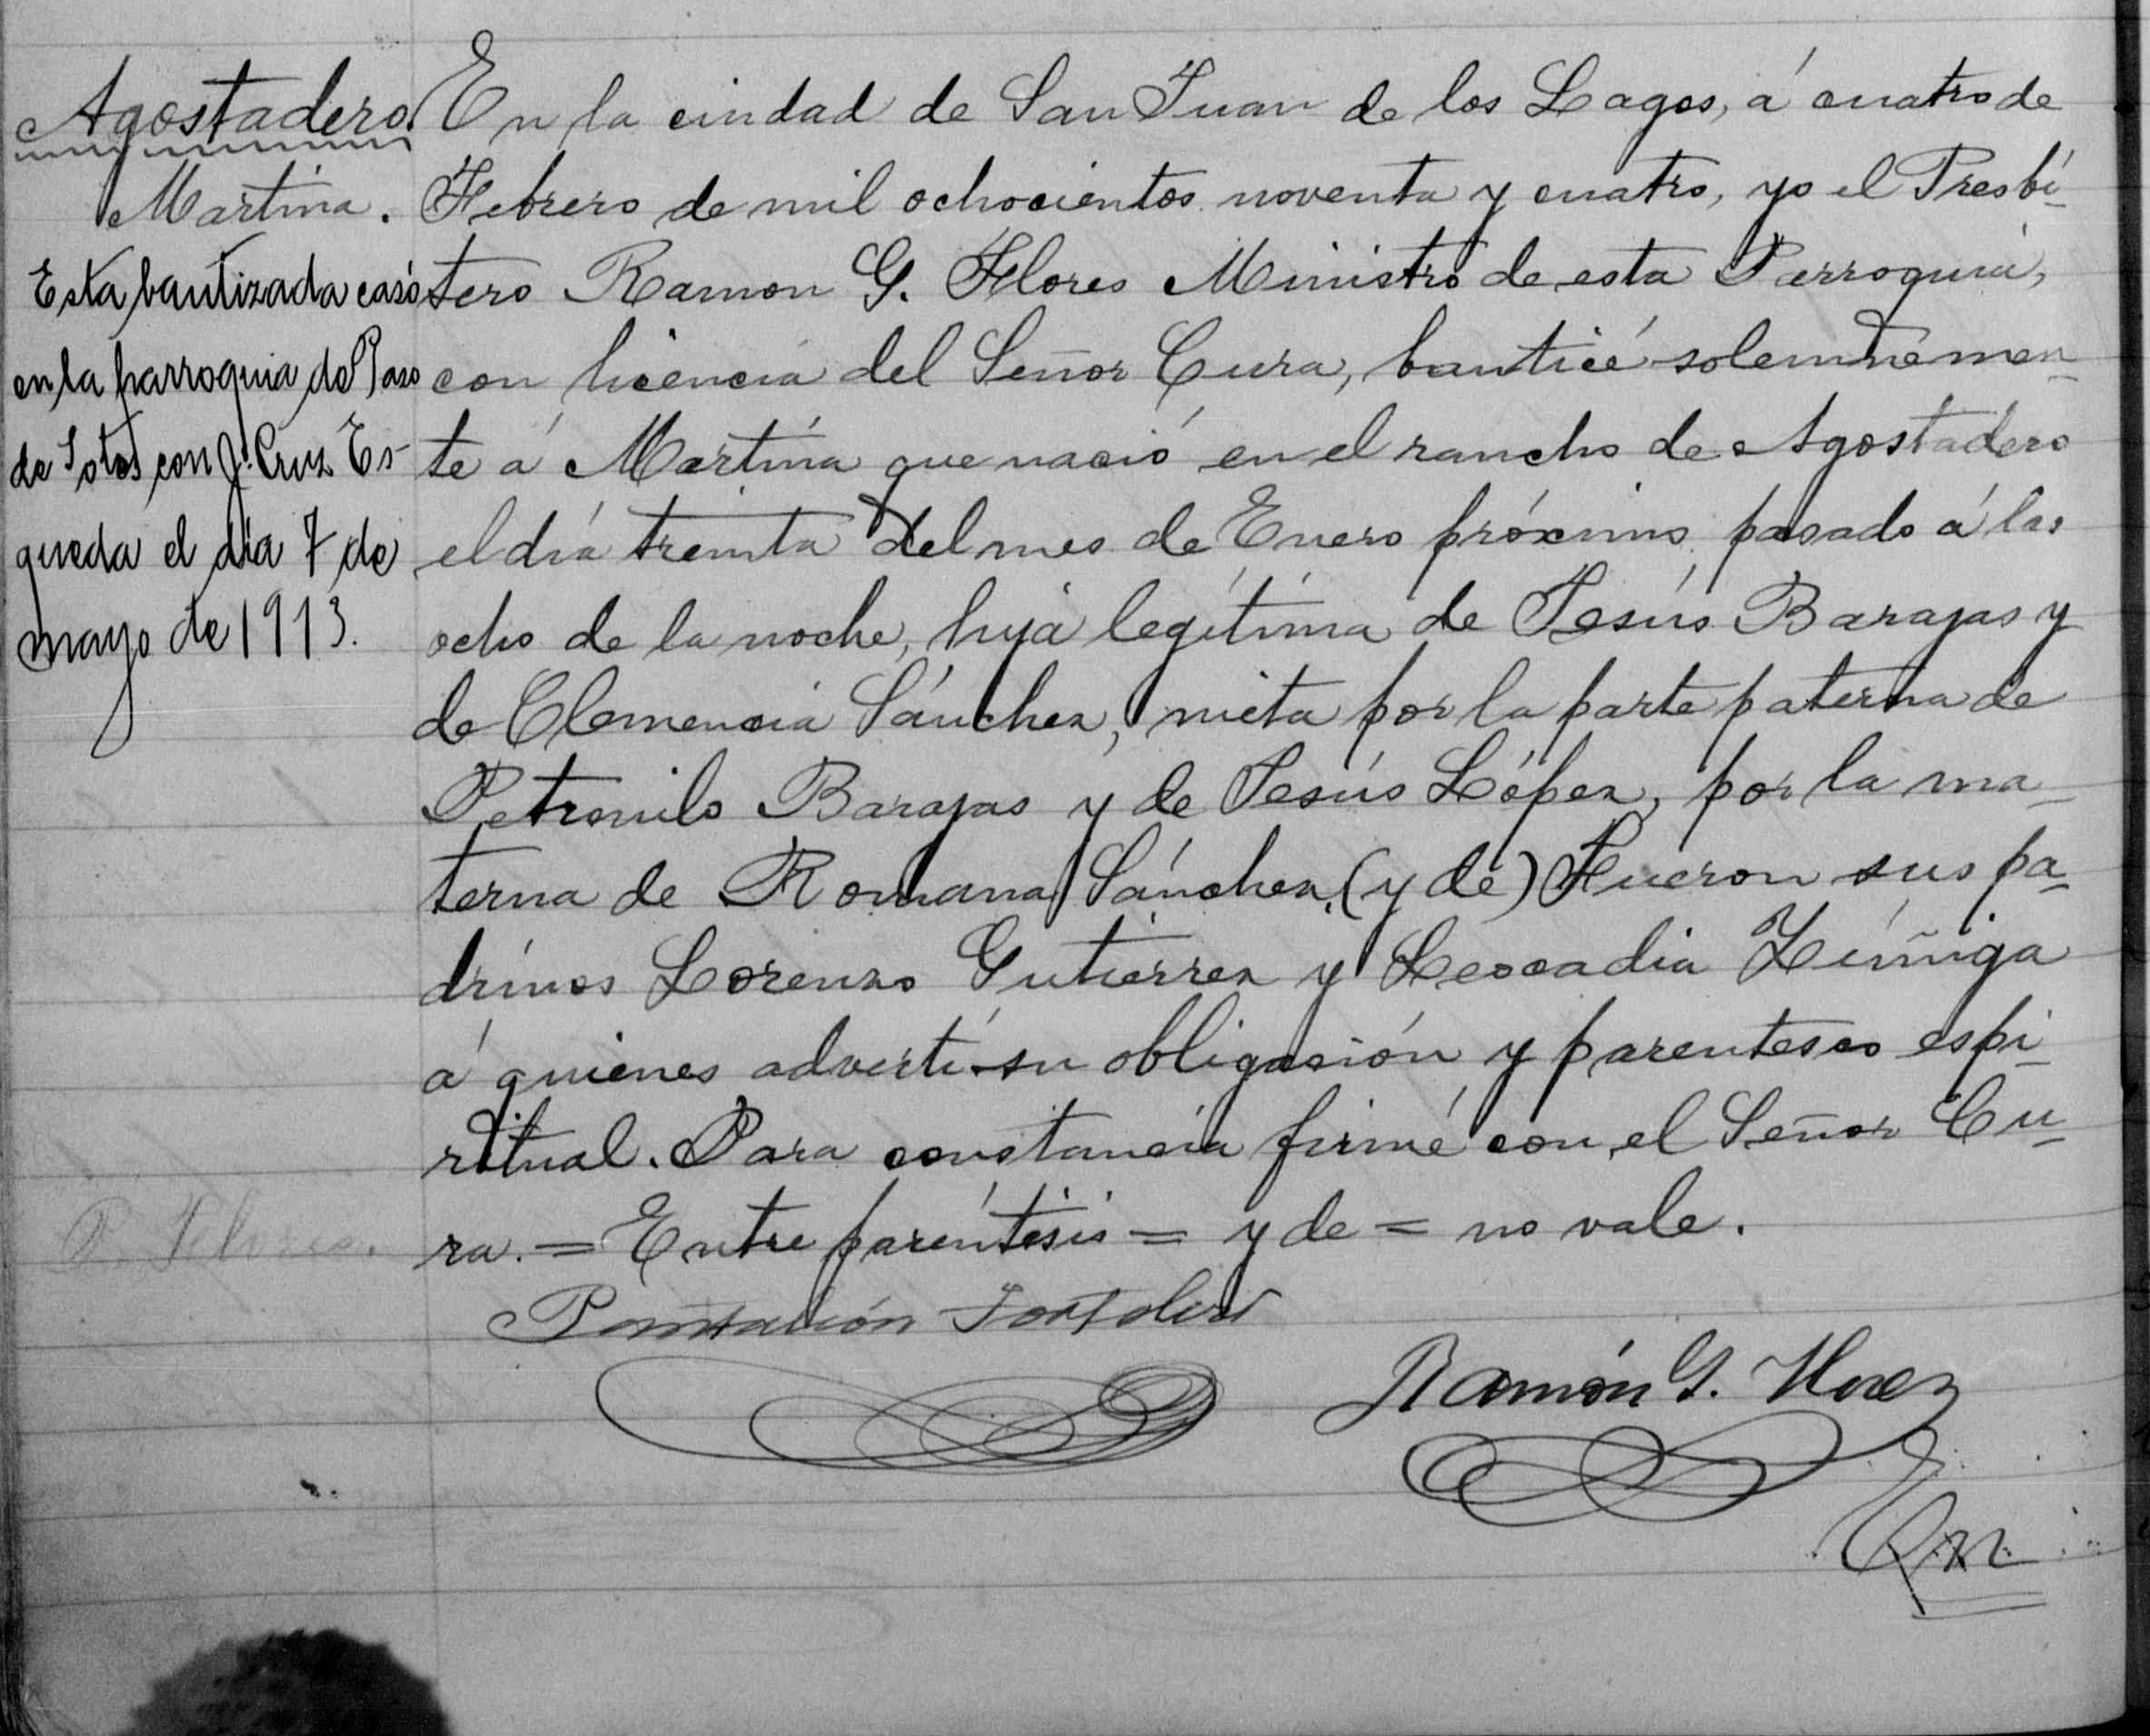 Agostadero
Martina.
Esta bautizada casó
en la parroquia de Paso
de Sotos con J. Cruz Es-
queda el día 7 de
mayo de 1913.
En la ciudad de San Juan de los Lagos, á cuatro de
Febrero de mil ochocientos noventa y cuatro, yo el Presbí-
tero Ramon G. Flores Ministro de esta Parroquia,
con licencia del Señor Cura, bauticé solemnemen-
te á Martina que nació en el rancho de Agostadero
el día treinta del mes de Enero próximo pasado á las
ocho de la noche, hija legítima de Jesús Barajas y
de Clemencia Sánchez, nieta por la parte paterna de
Petronilo Barajas y de Jesús López, por la ma-
terna de Romana Sánchez, (y de) Fueron sus pa-
drinos Lorenzo Gutiérrez y Leocadia Zúñiga
á quienes advertí su obligación y parentesco espi-
ritual. Para constancia firmé con el Señor Cu-
ra. = Entre paréntesis = y de = no vale.
P. Flores.
Pantaleón Tortolero
Ramón G. Flores